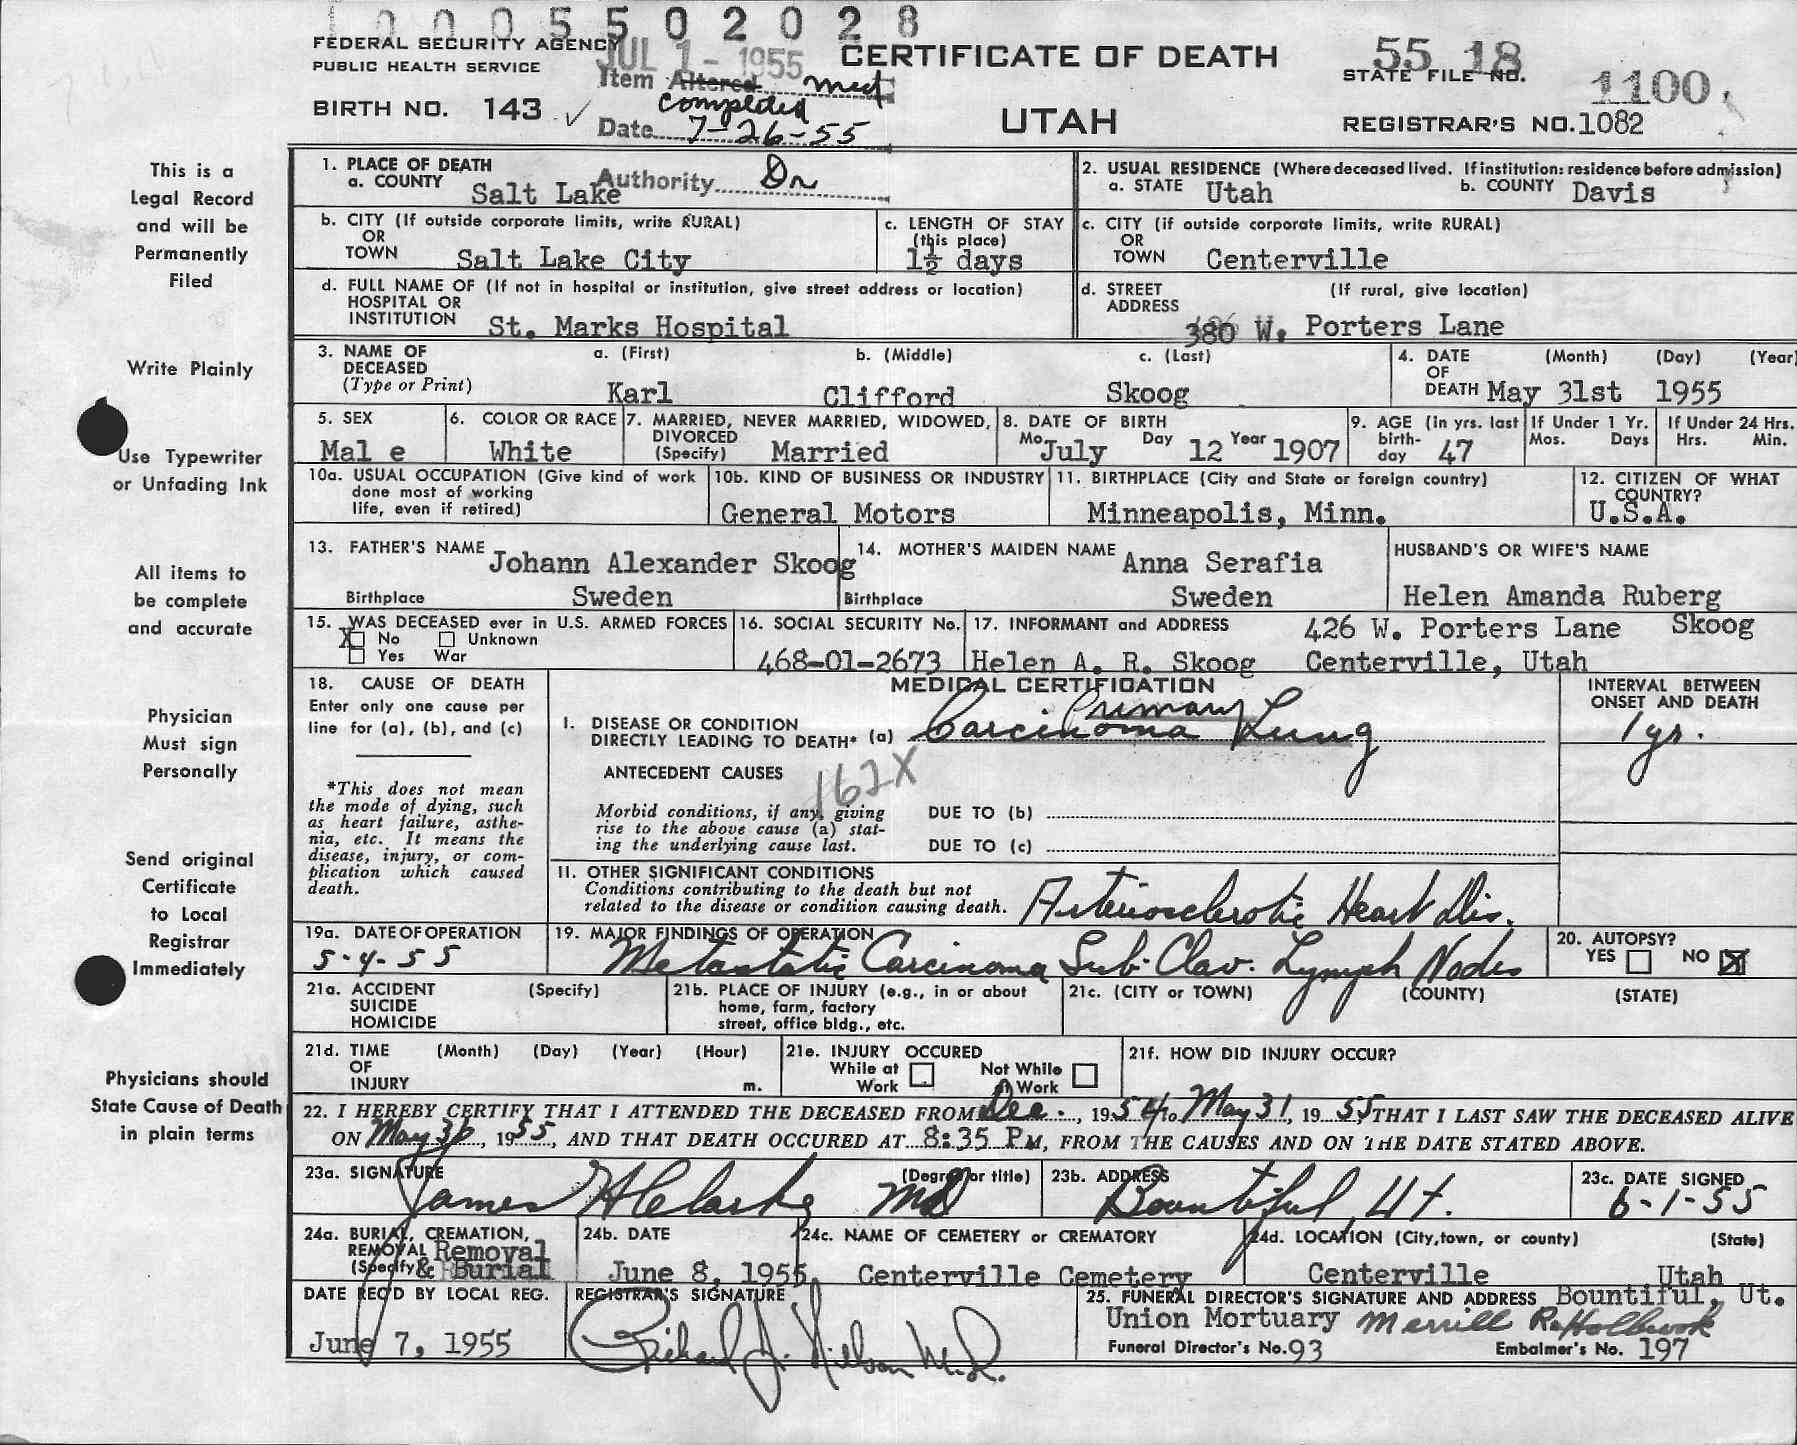 0005502028
FEDERAL SECURITY AGENCY
PUBLIC HEALTH SERVICE
JUL 1 - 1955
CERTIFICATE OF DEATH
55 18
STATE FILE NO.
1100
Item Altered med
completed
BIRTH NO. 143 ✓
Date 7-26-55
UTAH
REGISTRAR'S NO. 1082
This is a
Legal Record
and will be
Permanently
Filed
Write Plainly
Use Typewriter
or Unfading Ink
All items to
be complete
and accurate
Physician
Must sign
Personally
Send original
Certificate
to Local
Registrar
Immediately
Physicians should
State Cause of Death
in plain terms
1. PLACE OF DEATH
a. COUNTY Salt Lake
Authority Dr
2. USUAL RESIDENCE (Where deceased lived. If institution: residence before admission)
a. STATE Utah b. COUNTY Davis
b. CITY (If outside corporate limits, write RURAL)
OR
TOWN Salt Lake City
c. LENGTH OF STAY
(this place)
1½ days
c. CITY (if outside corporate limits, write RURAL)
OR
TOWN Centerville
d. FULL NAME OF (If not in hospital or institution, give street address or location)
HOSPITAL OR
INSTITUTION St. Marks Hospital
d. STREET (If rural, give location)
ADDRESS
380 W. Porters Lane
3. NAME OF a. (First) b. (Middle) c. (Last)
DECEASED
(Type or Print) Karl Clifford Skoog
4. DATE (Month) (Day) (Year)
OF
DEATH May 31st 1955
5. SEX
Mal e
6. COLOR OR RACE
White
7. MARRIED, NEVER MARRIED, WIDOWED,
DIVORCED
(Specify) Married
8. DATE OF BIRTH
Mo. July Day 12 Year 1907
9. AGE (in yrs. last
birth-
day 47
If Under 1 Yr.
Mos. Days
If Under 24 Hrs.
Hrs. Min.
10a. USUAL OCCUPATION (Give kind of work
done most of working
life, even if retired)
10b. KIND OF BUSINESS OR INDUSTRY
General Motors
11. BIRTHPLACE (City and State or foreign country)
Minneapolis, Minn.
12. CITIZEN OF WHAT
COUNTRY?
U.S.A.
13. FATHER'S NAME Johann Alexander Skoog
Birthplace Sweden
14. MOTHER'S MAIDEN NAME Anna Serafia
Birthplace Sweden
HUSBAND'S OR WIFE'S NAME
Helen Amanda Ruberg
Skoog
15. WAS DECEASED ever in U.S. ARMED FORCES
X No Unknown
Yes War
16. SOCIAL SECURITY No.
468-01-2673
17. INFORMANT and ADDRESS 426 W. Porters Lane
Helen A. R. Skoog Centerville, Utah
18. CAUSE OF DEATH
Enter only one cause per
line for (a), (b), and (c)
*This does not mean
the mode of dying, such
as heart failure, asthe-
nia, etc. It means the
disease, injury, or com-
plication which caused
death.
MEDICAL CERTIFICATION
INTERVAL BETWEEN
ONSET AND DEATH
Primary
I. DISEASE OR CONDITION
DIRECTLY LEADING TO DEATH* (a) Carcinoma Lung
1 yr.
ANTECEDENT CAUSES
162X
Morbid conditions, if any, giving
rise to the above cause (a) stat-
ing the underlying cause last.
DUE TO (b)
DUE TO (c)
II. OTHER SIGNIFICANT CONDITIONS
Conditions contributing to the death but not
related to the disease or condition causing death. Arteriosclerotic Heart Dis.
19a. DATE OF OPERATION
5-4-55
19. MAJOR FINDINGS OF OPERATION
Metastatic Carcinoma Sub-Clav. Lymph Nodes
20. AUTOPSY?
YES NO X
21a. ACCIDENT (Specify)
SUICIDE
HOMICIDE
21b. PLACE OF INJURY (e.g., in or about
home, farm, factory
street, office bldg., etc.
21c. (CITY or TOWN) (COUNTY) (STATE)
21d. TIME (Month) (Day) (Year) (Hour)
OF
INJURY m.
21e. INJURY OCCURED
While at Not While
Work at Work
21f. HOW DID INJURY OCCUR?
22. I HEREBY CERTIFY THAT I ATTENDED THE DECEASED FROM Dec., 1954 to May 31, 1955, THAT I LAST SAW THE DECEASED ALIVE
ON May 1955, AND THAT DEATH OCCURED AT 8:35 P M, FROM THE CAUSES AND ON THE DATE STATED ABOVE.
23a. SIGNATURE (Degree or title)
James H Clarke MD
23b. ADDRESS
Bountiful, Ut.
23c. DATE SIGNED
6-1-55
24a. BURIAL, CREMATION,
REMOVAL Removal
(Specify) & Burial
24b. DATE
June 8, 1955
24c. NAME OF CEMETERY or CREMATORY
Centerville Cemetery
24d. LOCATION (City, town, or county) (State)
Centerville Utah
DATE REC'D BY LOCAL REG.
June 7, 1955
REGISTRAR'S SIGNATURE
Richard J. Nielson M.D.
25. FUNERAL DIRECTOR'S SIGNATURE AND ADDRESS Bountiful, Ut.
Union Mortuary Merrill R. Holbrook
Funeral Director's No. 93 Embalmer's No. 197